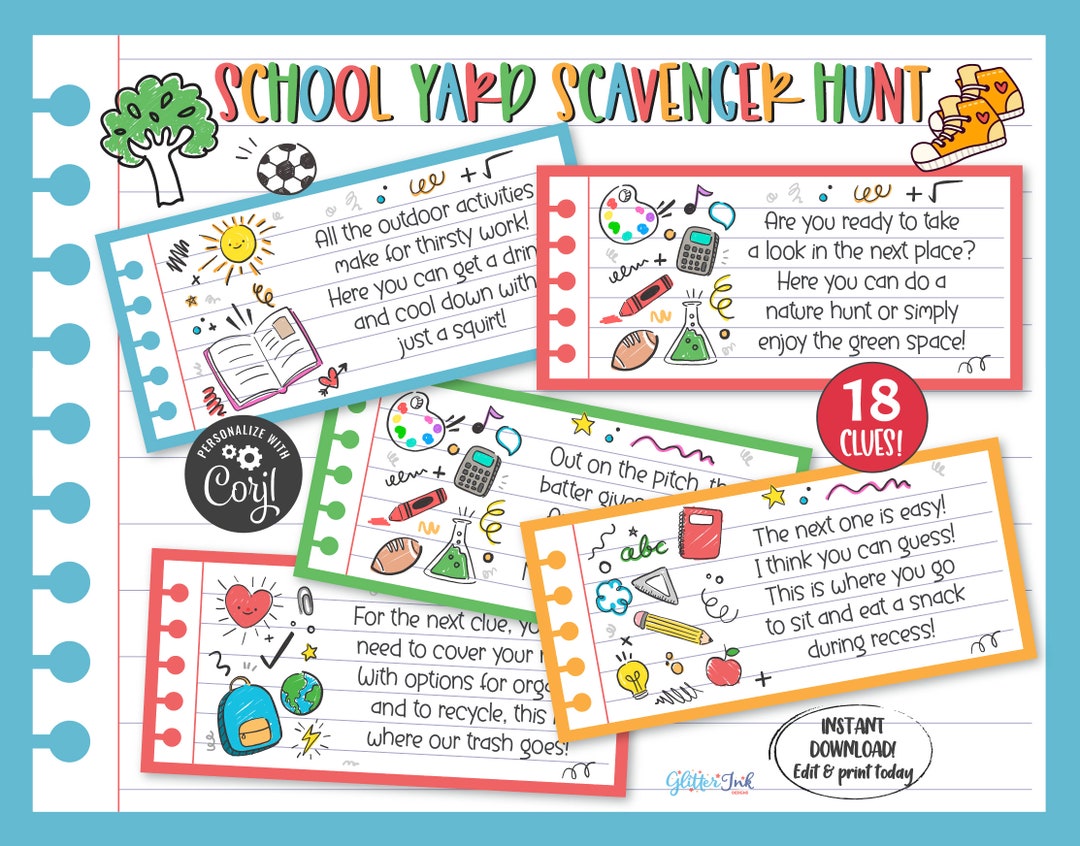 SCHOOL YARD SCAVENGER HUNT
All the outdoor activities
make for thirsty work!
Here you can get a
and cool down with
just a squirt!
Are you ready to take
a look in the next place?
Here you can do a
nature hunt or simply
enjoy the green space!
18
CLUES!
PERSONALIZE WITH
Corjl
Out on the pitch,
batter
abc
The next one is easy!
I think you can guess!
This is where you go
to sit and eat a snack
during recess!
For the next clue,
need to cover your
With options for
and to recycle, this
where our trash goes!
INSTANT
DOWNLOAD!
Edit & print today
Glitter Ink
DESIGNS